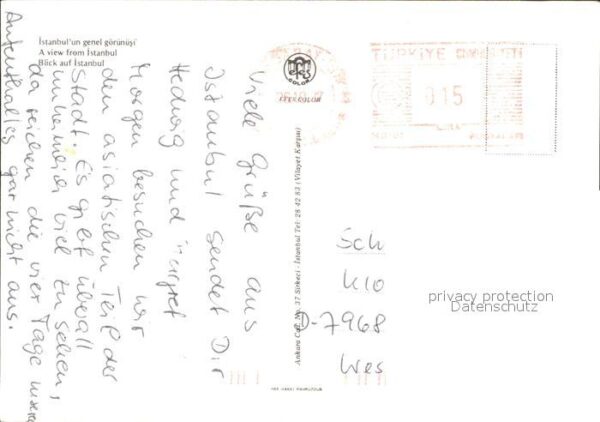 İstanbul'un genel görünüşü
A view from İstanbul
Blick auf İstanbul
Viele Grüße aus
Istanbul sendet Dir
Hedwig und
Morgen besuchen wir
den asiatischen Teil der
Stadt. Es gibt überall
unheimlich viel zu sehen,
da reichen die vier Tage unseres
Aufenthaltes gar nicht aus.
COLOR
KEYS COLOR
Ankara Cad. No: 37 Sirkeci - İstanbul Tel: 28 42 83 (Vilayet Karşısı)
TÜRKİYE
015
LİRA
Sch
Klo
D-7968
Wes
privacy protection
Datenschutz